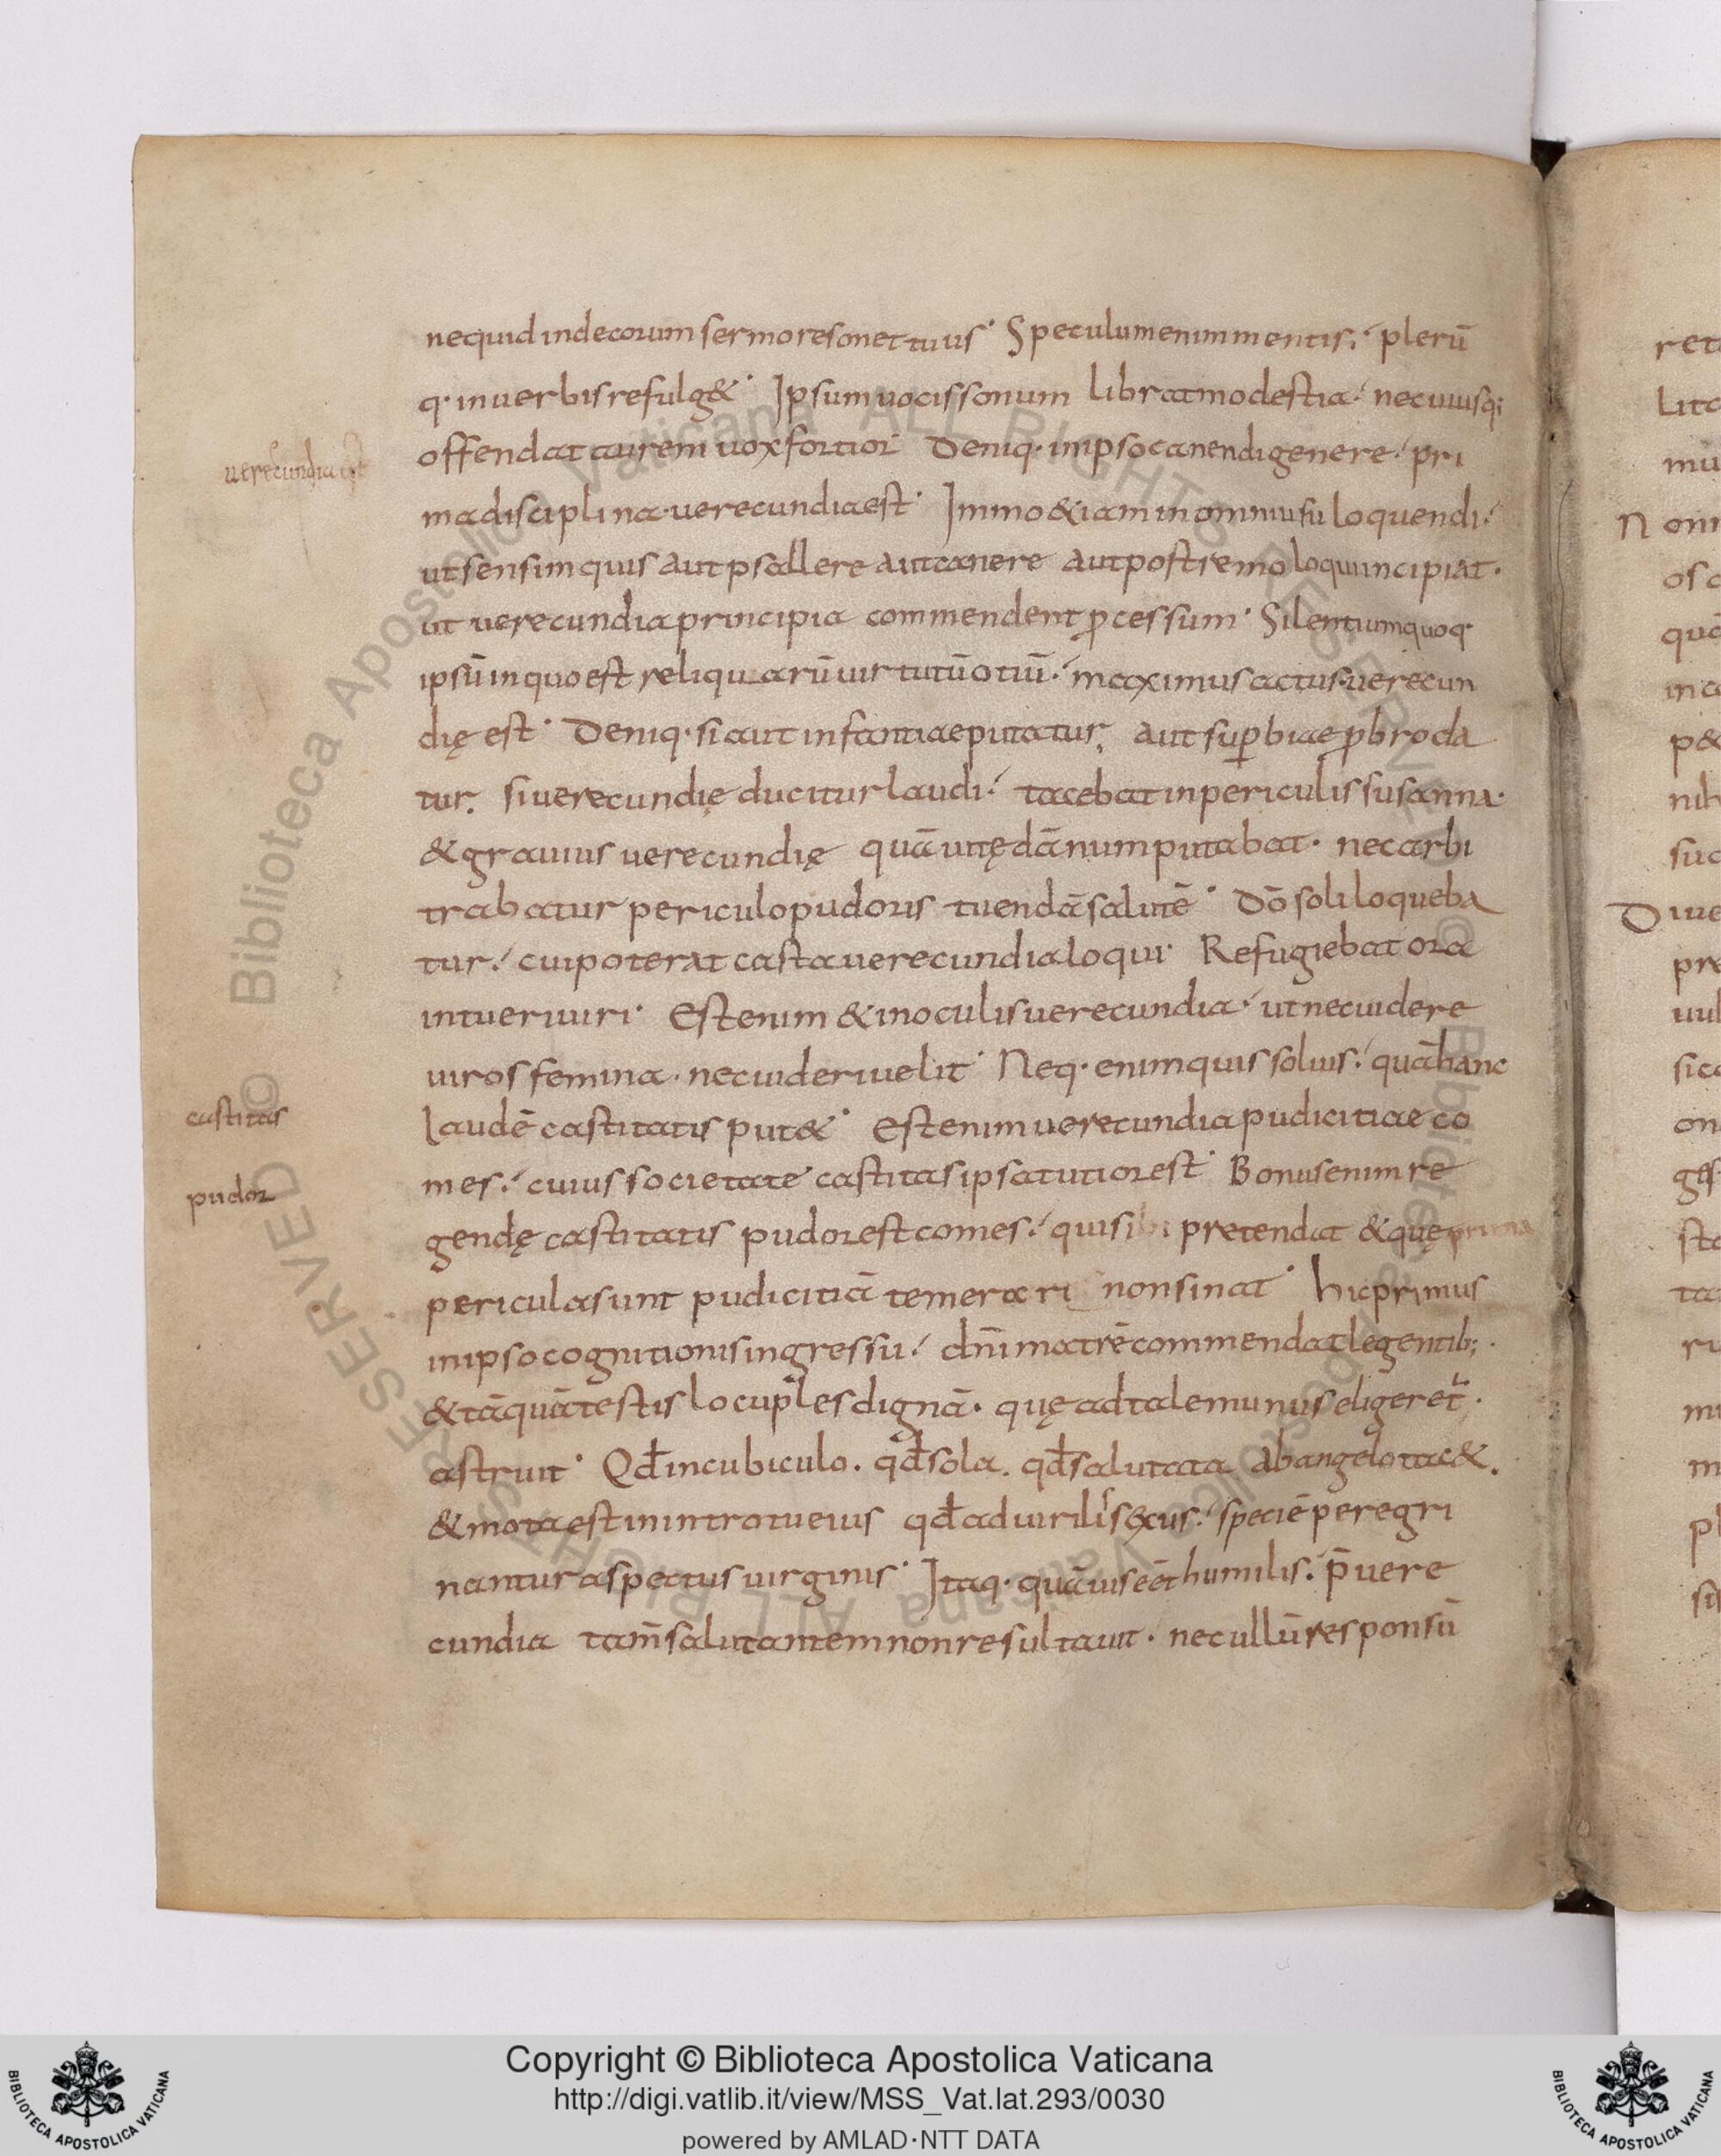 nequid indecorum sermo resonet tuus· Speculum enim mentis; plerū
q· in uerbis refulg&· Ipsum uocis sonum librat modestia· ne cuiusq;
offendat aurem uox fortior Deniq· in ipso canendi genere· pri
uerecundia est
ma disciplina· uerecundia est· Immo &iam in omni usu loquendi·
ut sensim quis aut psallere aut canere aut postremo loqui incipiat·
ut uerecundia principia commendent ꝓcessum· Silentium quoq·
ipsū in quo est reliquarū uirtutū otiū· maximus actus uerecun
dię est· Deniq· si aut infantiae putatur, aut suꝑbiae ꝓbro da
tur, si uerecundię ducitur laudi· tacebat in periculis susanna·
& grauius uerecundię quā uitę dānum putabat· nec arbi
trabatur periculo pudoris tuendā salutē· Dō soli loqueba
tur· cui poterat casta uerecundia loqui· Refugiebat ora
intueri uiri· Est enim & in oculis uerecundia· ut nec uidere
uiros femina· nec uideri uelit· Neq· enim quis solius· quā hanc
castitas
laudē castitatis put&· Est enim uerecundia pudicitiae co
mes· cuius societate castitas ipsa tutior est· Bonus enim re
pudor
gendę castitatis pudor est comes· qui si pretendat & quę prima
pericula sunt pudicitiā temerari non sinat· hic primus
in ipso cognitionis ingressu· dn̄i matrē commendat legentib;·
& tāquā testis locuples dignā· quę ad tale munus eligeret·
astruit· Qd̄ in cubiculo· qd̄ sola· qd̄ salutata ab angelo tac&·
& mota est in introitu eius qd̄ ad uirilis sexus· speciē peregri
nantur aspectus uirginis· Itaq· quāuis eēt humilis· p̄ uere
cundia tam̄ salutantem non resultauit· nec ullū responsū
ret
Lita
mu
N on
os
qua
in c
p&
nih
suc
D iue
pre
uul
sic
on
ges
sta
ta
ru
mi
m
pl
sis
© Biblioteca Apostolica Vaticana ALL RIGHTS RESERVED
© Biblioteca Apostolica Vaticana ALL RIGHTS RESERVED
BIBLIOTECA APOSTOLICA VATICANA
Copyright © Biblioteca Apostolica Vaticana
http://digi.vatlib.it/view/MSS_Vat.lat.293/0030
powered by AMLAD·NTT DATA
BIBLIOTECA APOSTOLICA VATICANA